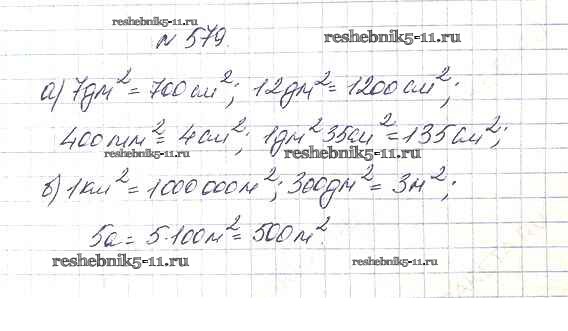 reshebnik5-11.ru
№ 579.
reshebnik5-11.ru
а) 7дм² = 700см²; 12дм² = 1200см²;
400мм² = 4см²; 1дм² 35см² = 135см²;
reshebnik5-11.ru
reshebnik5-11.ru
б) 1км² = 1000 000м²; 300дм² = 3м²;
5а = 5·100м² = 500м².
reshebnik5-11.ru
reshebnik5-11.ru